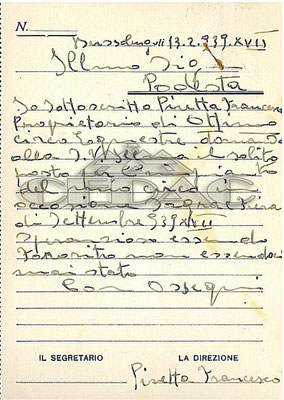 N.
Bussolengo li 13.2.939.XVII
Illmo Sig
Podestà
Io sottoscritto Pisetta Francesco
Proprietario di Ottimo
circo Equestre domanda
alla S.V. Illma il solito
posto
del mio circo in
occasione Sagra Fiera
di Settembre 939 XVII
Speranzoso essendo
Favorito non essendoci
mai stato
Con Ossequi
IL SEGRETARIO LA DIREZIONE
Pisetta Francesco